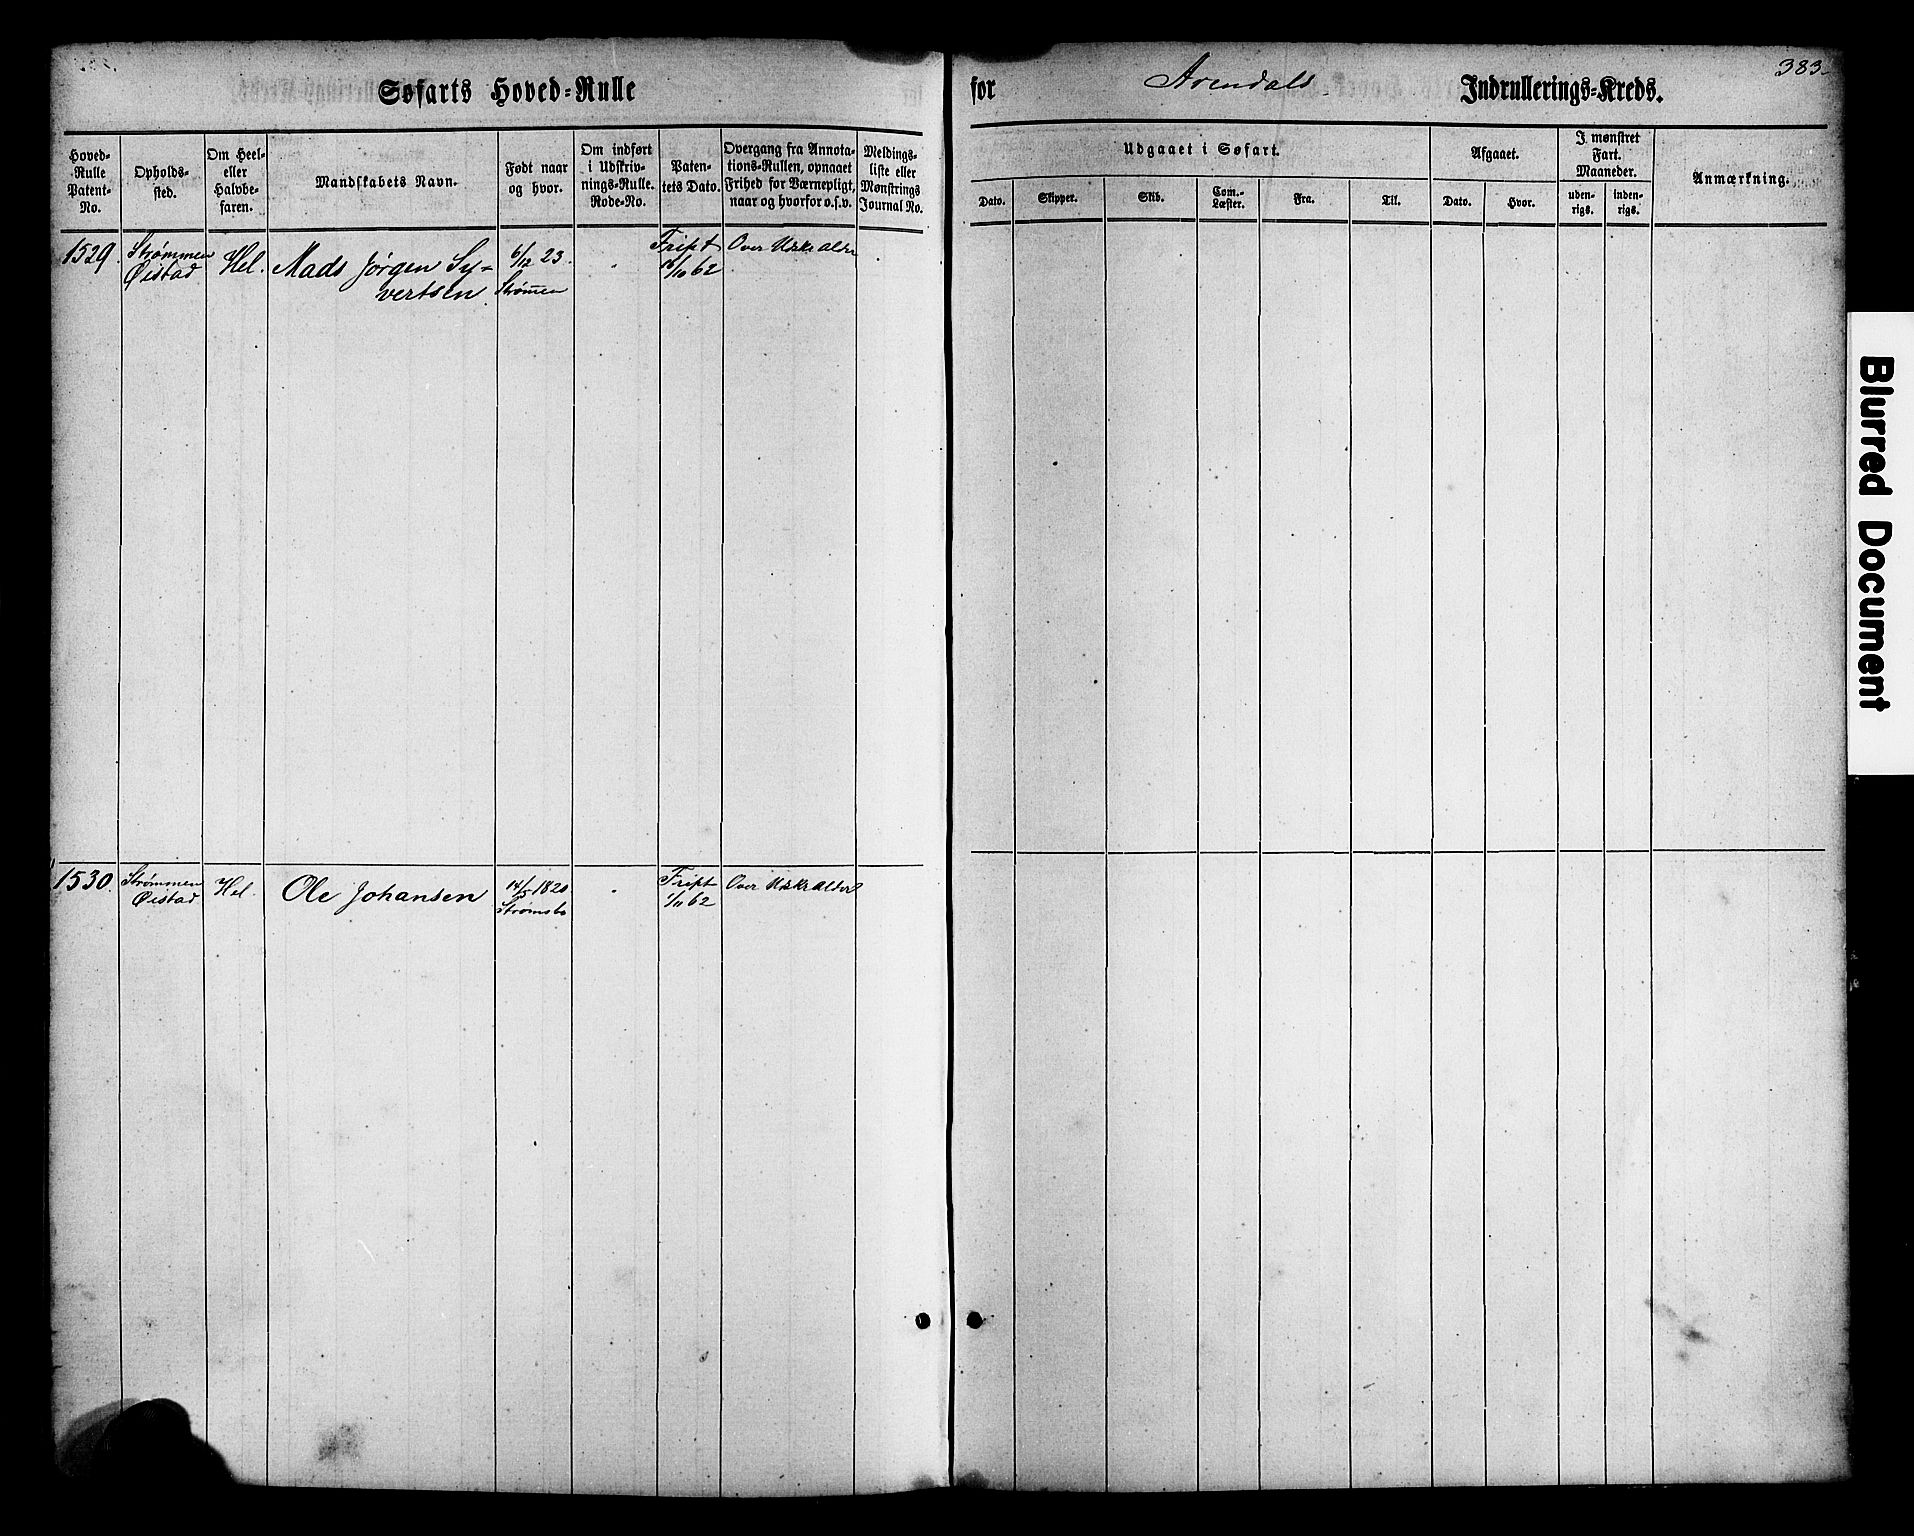 383
Søfarts Hoved-Rulle for Arendals Indrullerings-Kreds.
Hoved-
Rulle
Patent-
No.
Opholds-
sted.
Om Heel-
eller
Halvbe-
faren.
Mandskabets Navn.
Født naar
og hvor.
Om indført
i Udskriv-
nings-Rulle.
Rode-No.
Paten-
tets Dato.
Overgang fra Annota-
tions-Rullen, opnaaet
Frihed for Værnepligt,
naar og hvorfor o.s.v.
Meldings-
liste eller
Mønstrings
Journal No.
Udgaaet i Søfart.
Dato.
Skipper.
Skib.
Com.-
Læster.
Fra.
Til.
Afgaaet.
Dato.
Hvor.
I mønstret
Fart.
Maaneder.
uden-
rigs.
inden-
rigs.
Anmærkning.
1529.
Strømmen
Øistad
Hel.
Mads Jørgen Sy-
vertsen.
6/12 23.
Strømen
Fript
62
Over Udskr alder
1530.
Strømmen
Øistad
Hel.
Ole Johansen
14/5 1820
Strømsbo
Fript
1/11 62
Over Udskr Alder
Blurred Document